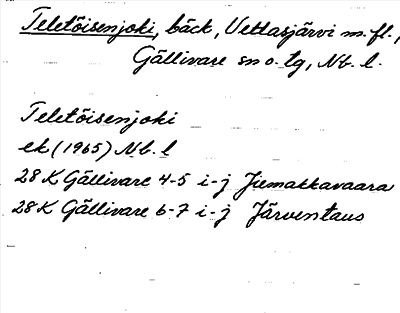 Teletöisenjoki, bäck, Vettasjärvi m.fl.,
Gällivare sn o. tg, Nb. l.
Teletöisenjoki
ek (1965) Nb. l
28 K Gällivare 4-5 i-j Jiemakkavaara
28 K Gällivare 6-7 i-j Järventaus